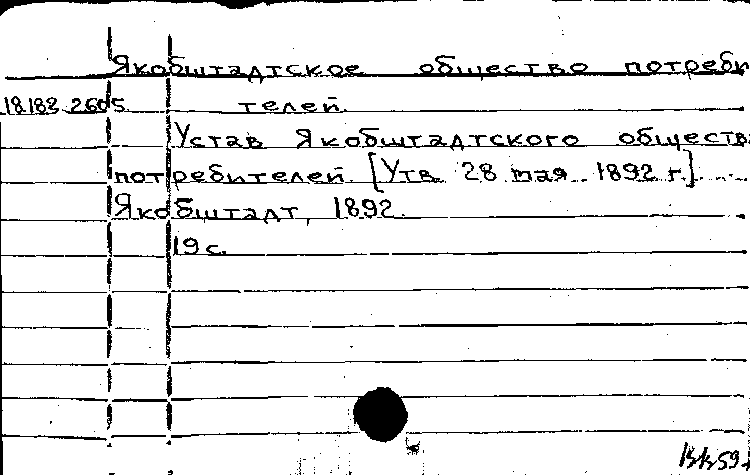 Якобштадтское общество потреби
18182 2605 телей.
Устав Якобштадтского обществ
потребителей. [Утв. 28 мая 1892 г.]....
Якобштадт, 1892.
19 с.